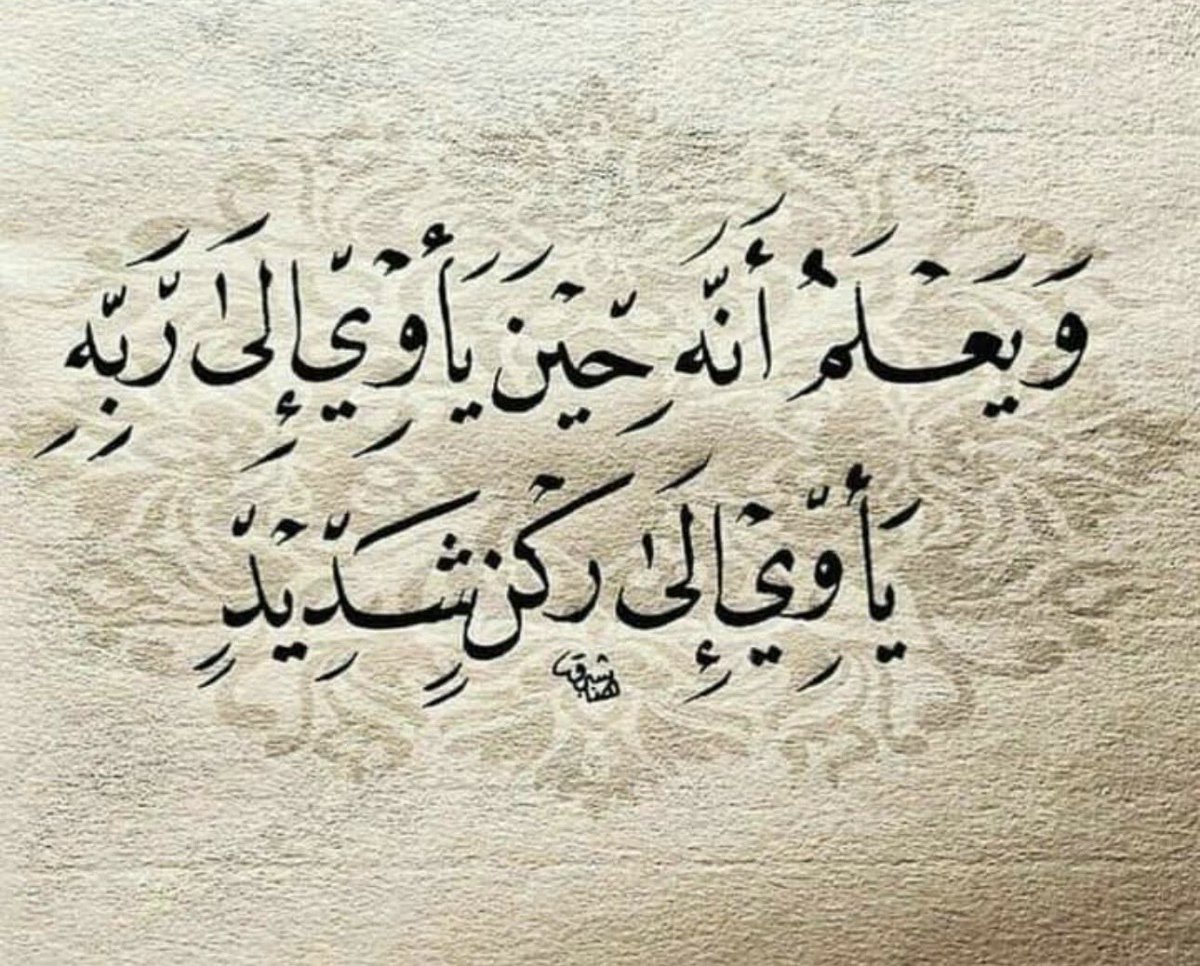 وَيَعْلَمُ أَنَّهُ حِيْنَ يَأْوِيْ إِلَىٰ رَبِّهِ
يَأْوِيْ إِلَىٰ رُكْنٍ شَدِيْدٍ